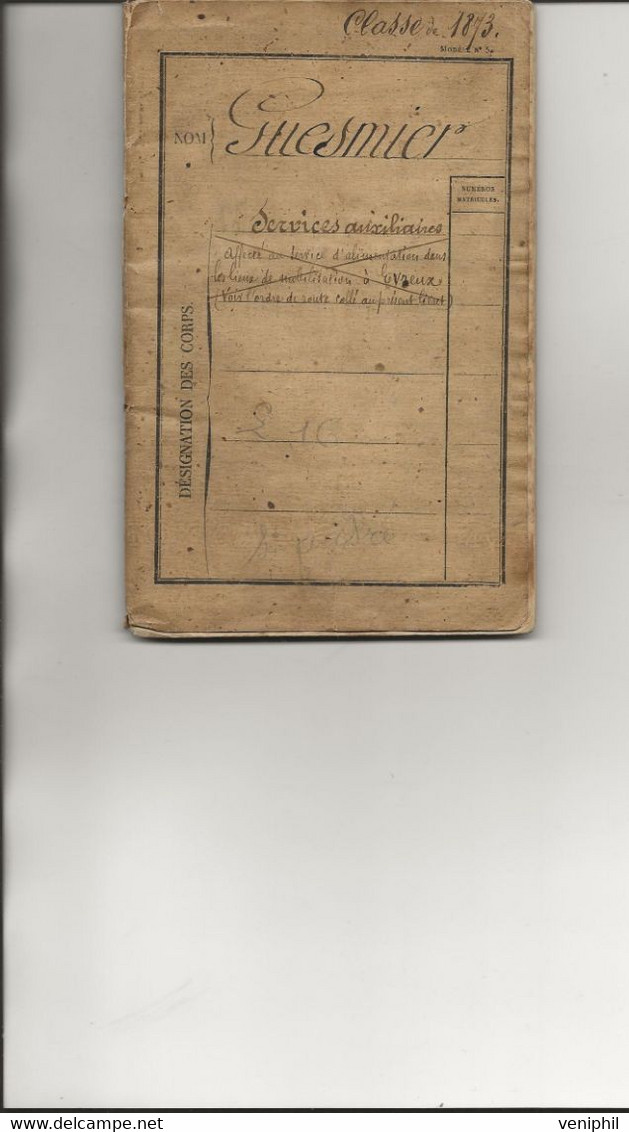 Classe de 1873.
Modèle N° 5.
NOM
Guesmier
NUMÉROS
MATRICULES.
DÉSIGNATION DES CORPS.
Services auxiliaires
Affecté au service d'alimentation dans
les lieux de mobilisation à Evreux
(Voir l'ordre de route collé au présent livret)
www.delcampe.net
veniphil